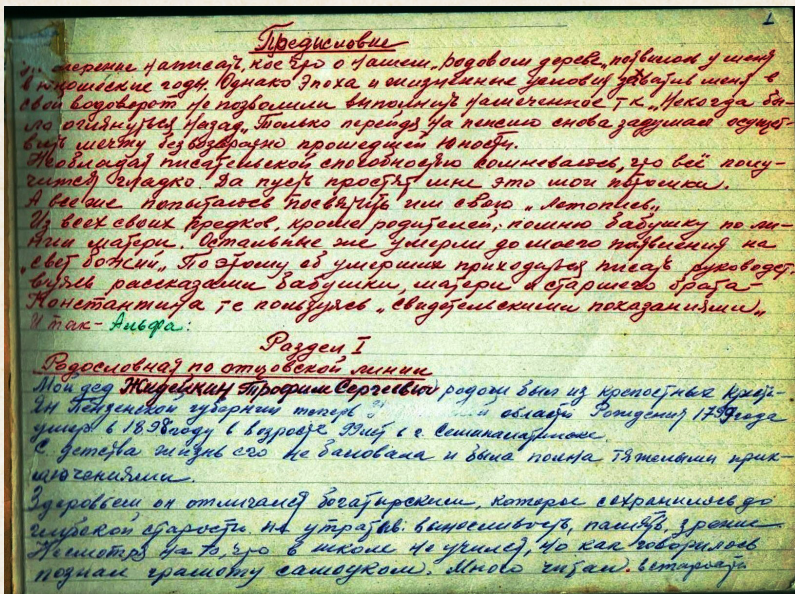 1
Предисловие
Намерение написать кое что о нашем „родовом дереве„ появилось у меня
в юношеские годы. Однако Эпоха и жизненные условия захватив меня в
свой водоворот не позволили выполнить намеченное т.к. „Некогда бы-
ло оглянуться назад„. Только перейдя на пенсию снова задумал осущест-
вить мечту безвозвратно прошедшей Юности.
Необладая писательской способностью сомневаюсь, что всё полу-
чится гладко. Да пусть простят мне это мои потомки.
А все же попытаюсь посвятить им свою „Летопись„
Из всех своих предков, кроме родителей, помню бабушку по ли-
нии матери. Остальные же умерли до моего появления на
„свет божий„. Поэтому об умерших приходится писать руководст-
вуясь рассказами бабушки, матери и старшего брата-
Константина т е пользуясь „свидетельскими показаниями„
Итак- Альфа:
Раздел I
Родословная по отцовской линии
Мой дед Жидейкин Трофим Сергеевич родом был из крепостных кресть-
ян Пензенской губернии теперь области Рождения 1799 года
умер в 1898 году в возрасте 99 лет в г. Семипалатинске.
С детства жизнь его не баловала и была полна тяжелыми прик-
лючениями.
Здоровьем он отличался богатырским, которое сохранилось до
глубокой старости не утратив: выносливость, память, зрение
Несмотря на то, что в школе не учился, но как говорилось
познал грамоту самоуком. Много читал в старости